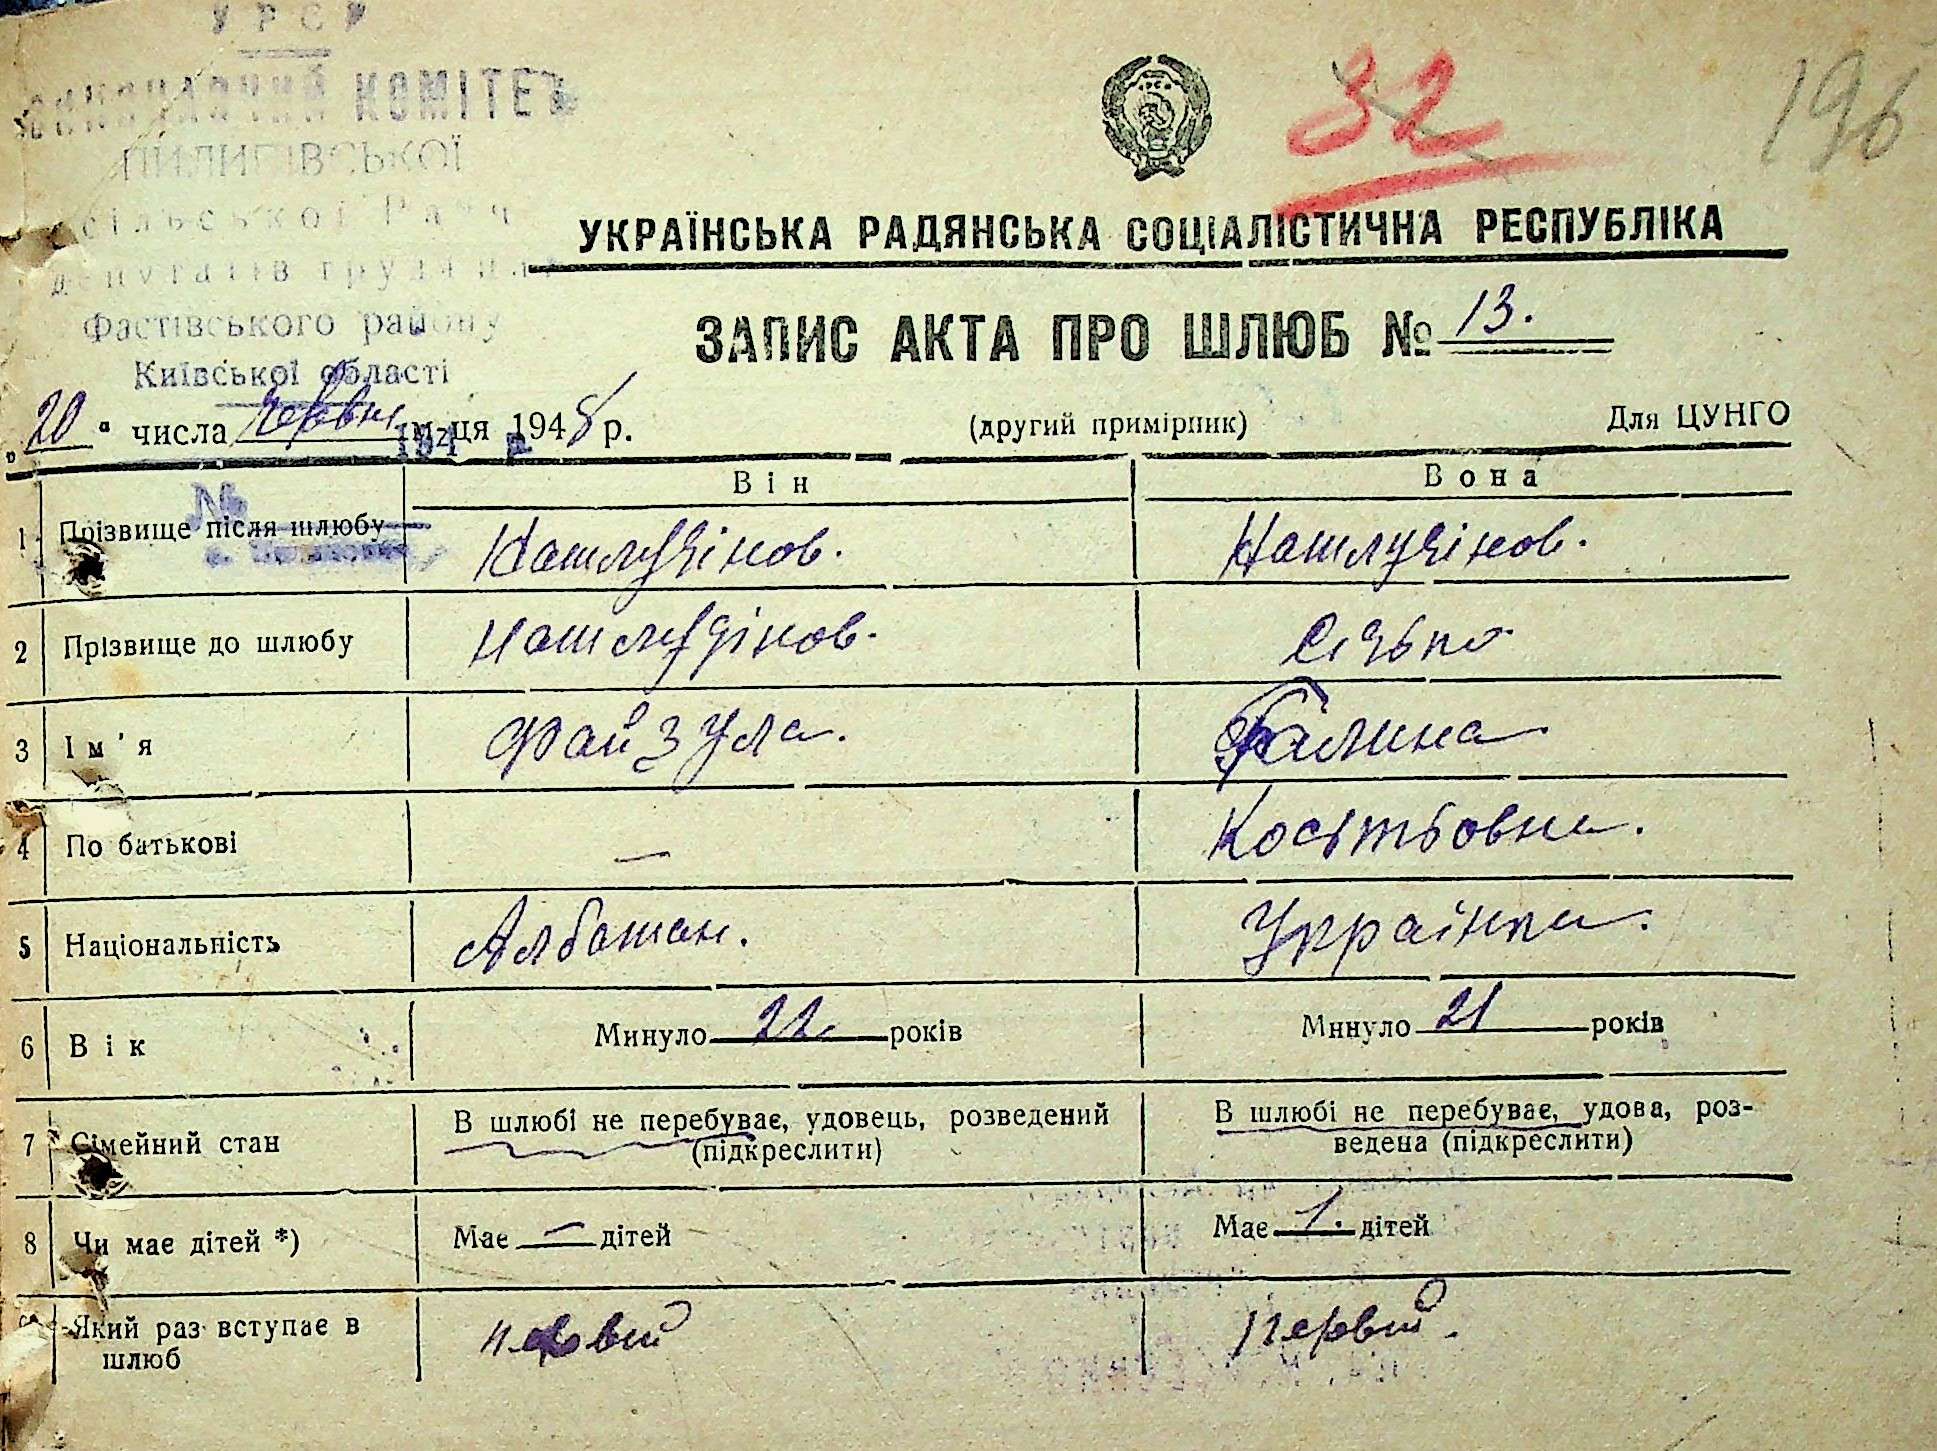 УРСР
ВИКОНАВЧИЙ КОМІТЕТ
ПИЛИПІВСЬКОЇ
сільської Ради
депутатів трудящих
Фастівського району
Київської області
194 р.
№
32
196
УКРАЇНСЬКА РАДЯНСЬКА СОЦІАЛІСТИЧНА РЕСПУБЛІКА
ЗАПИС АКТА ПРО ШЛЮБ № 13.
„20“ числа червня м-ця 1948 р. (другий примірник) Для ЦУНГО
Він Вона
1 Прізвище після шлюбу
2 Прізвище до шлюбу
3 Ім'я Файзула. Галина
4 По батькові —
5 Національність Албашан. Українка.
6 Вік Минуло 22. років Минуло 21 років
7 Сімейний стан В шлюбі не перебуває, удовець, розведений В шлюбі не перебуває, удова, роз-
(підкреслити) ведена (підкреслити)
8 Чи має дітей *) Має — дітей Має 1. дітей
Який раз вступає в первий первий.
шлюб